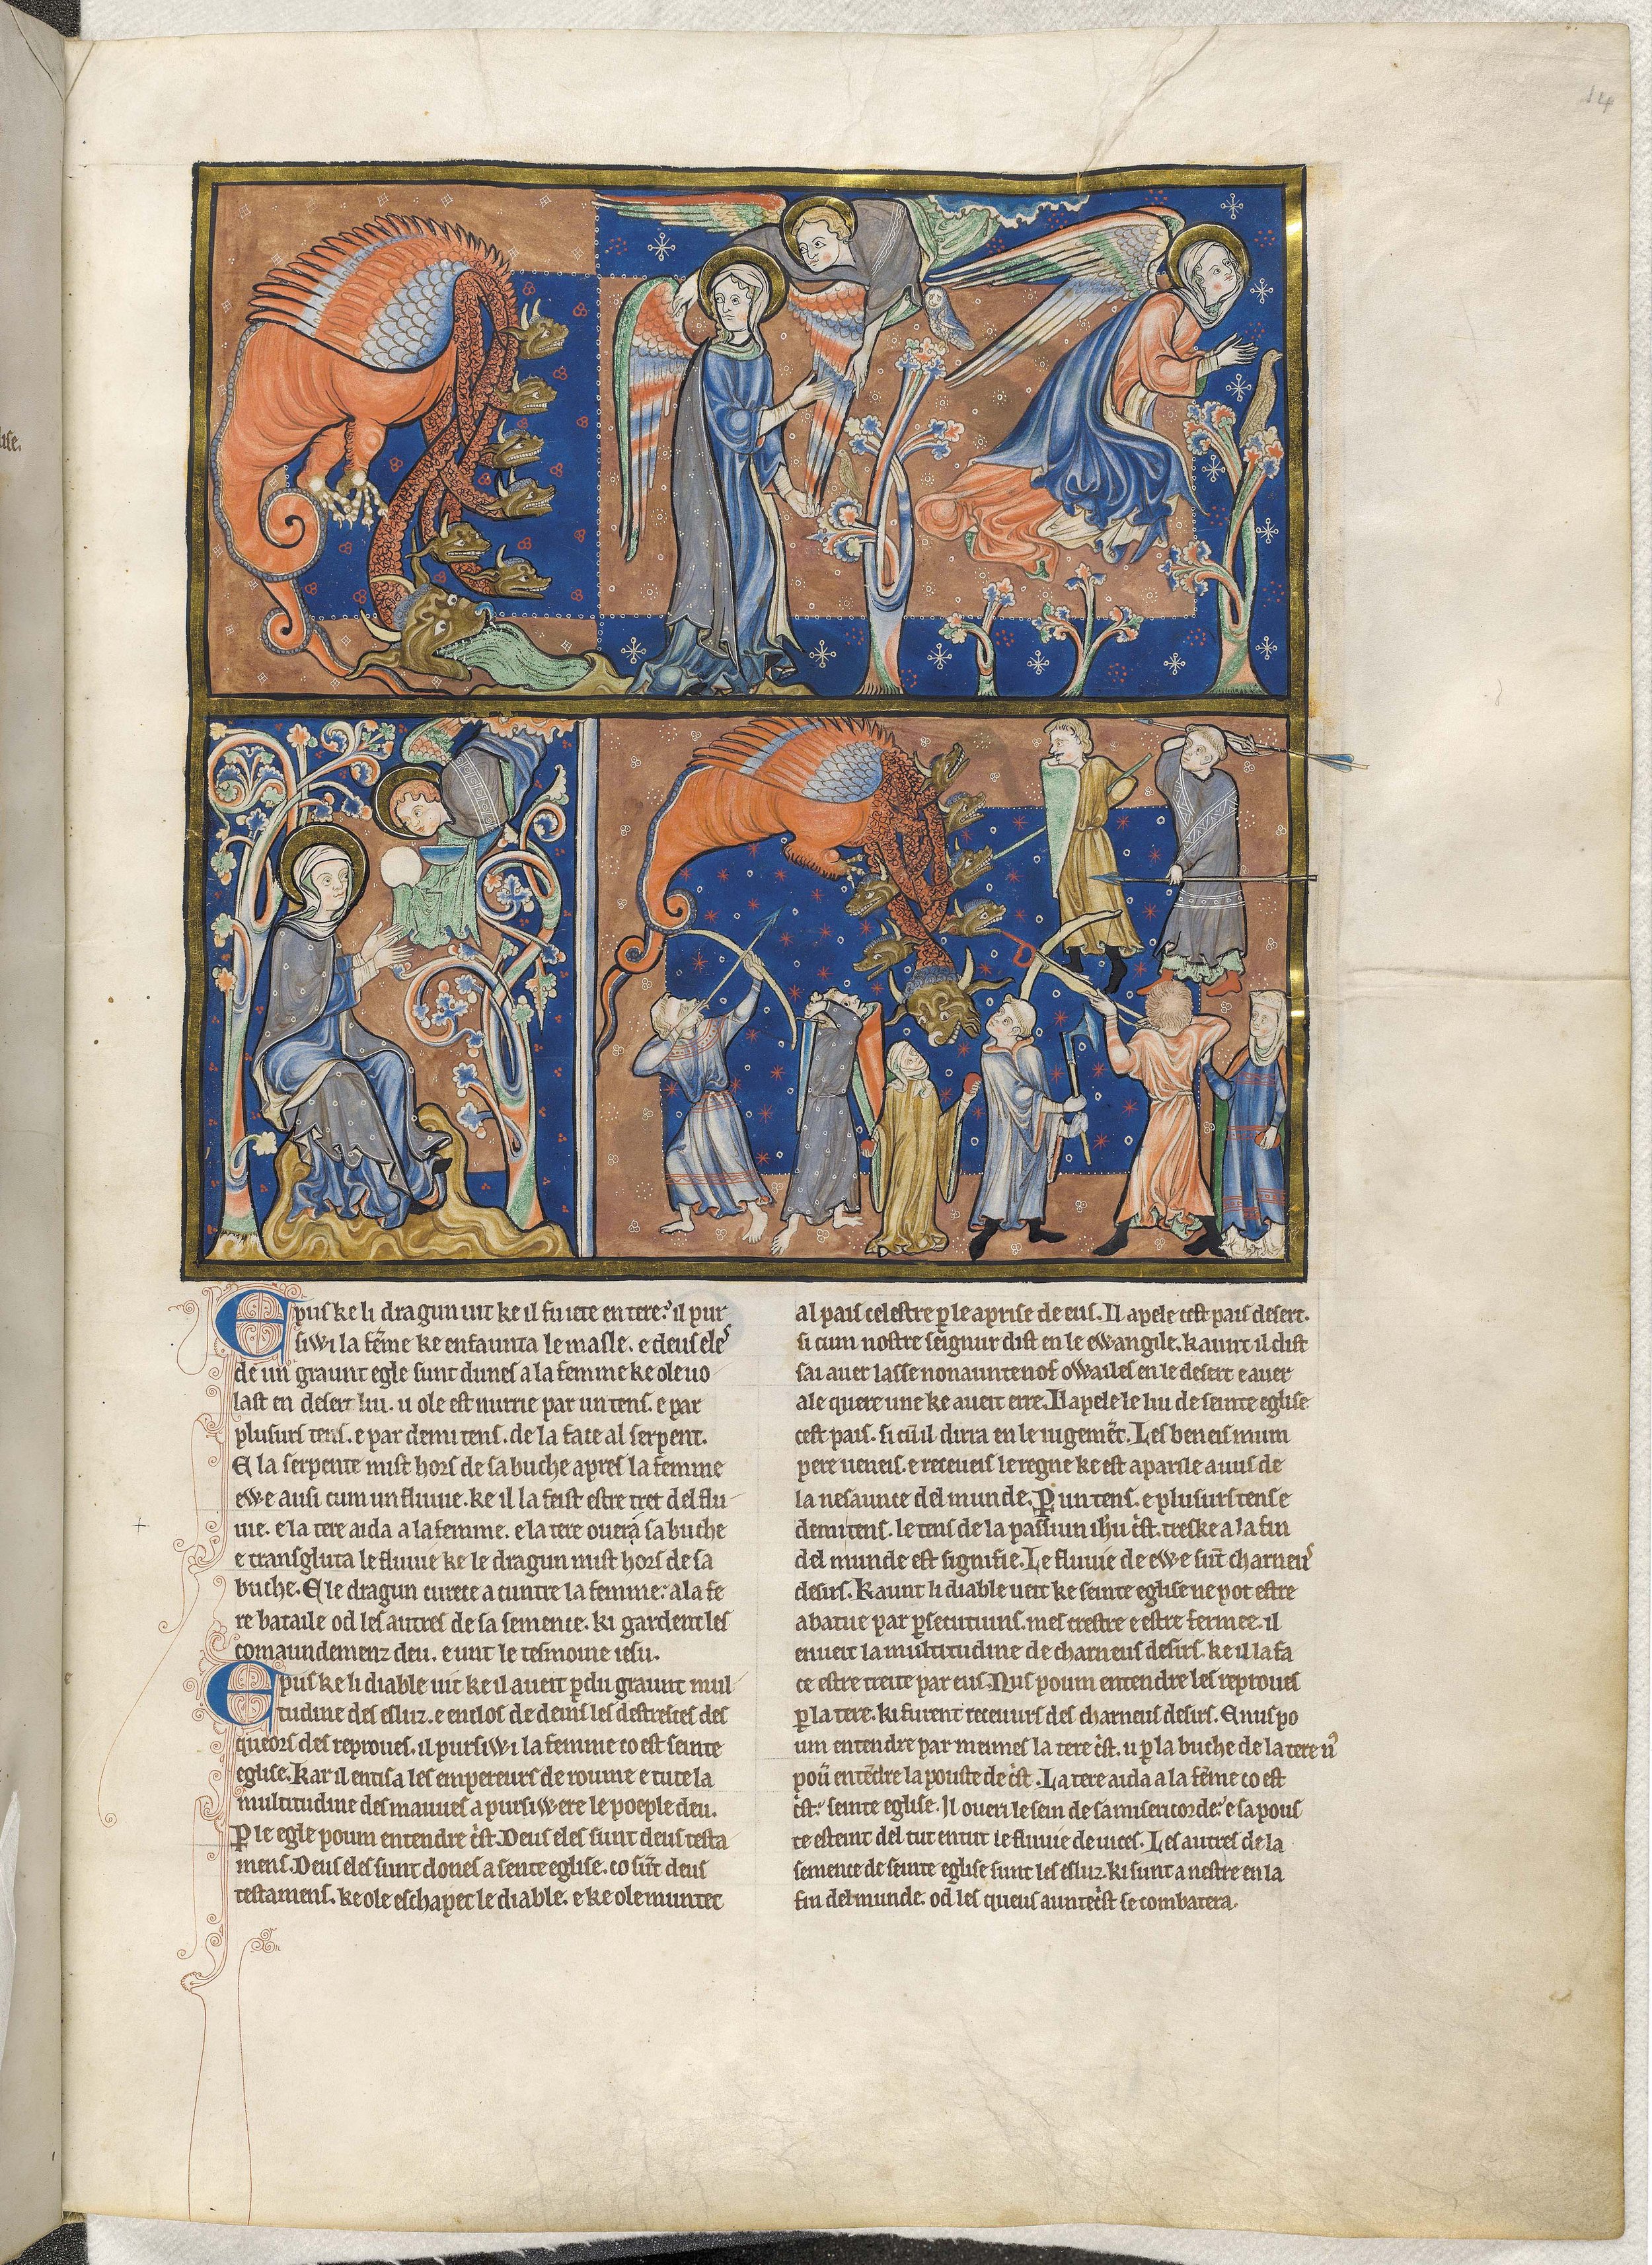 14
lise.
E puis ke li dragun uit ke il fu iete en tere: il pur
siwi la fēme ke enfaunta le masle. e deus eles
de un graunt egle sunt dunes a la femme ke ole uo
last en desert liu. u ole est nurrie par un tens. e par
plusurs tens. e par demi tens. de la face al serpent.
E la serpente mist hors de sa buche apres la femme
ewe ausi cum un fluuie. ke il la feist estre tret del flu
uie. e la tere aida a la femme. e la tere ouera sa buche
e transgluta le fluuie ke le dragun mist hors de sa
buche. E le dragun curece a cuntre la femme: ala fe
re bataile od les autres de sa semence. ki gardent les
comaundemenz deu. e unt le tesmoine iesu.
E puis ke li diable uit ke il aueit ꝑdu graunt mul
titudine des esluz. e enclos de deins les destresces des
queors des reproues. il pursiwi la femme co est seinte
eglise. Kar il entisa les empereurs de roume e tute la
multitudine des mauues a pursiwere le poeple deu.
Ꝑ le egle poum entendre c̄st. Deus eles sunt deus testa
mens. Deus eles sunt dones a sente eglise. co sūt deus
testamens. ke ole eschapet le diable. e ke ole muntet
al pais celestre ꝑ le aprise de eus. Il apele cest pais desert.
si cum nostre seignur dist en le ewangile. kaunt il dist
sai auer lasse nonaunte nof owailes en le desert e auer
ale quere une ke aueit erre. Il apele le liu de seinte eglise
cest pais. si cū il dirra en le iugemēt. Les beneis mum
pere ueneis. e receueis le regne ke est aparile a uus de
la nesaunce del munde. Ꝑ un tens. e plusurs tens e
demi tens. le tens de la passiun ih̄u c̄st. treske a la fin
del munde est signifie. Le fluuie de ewe sūt charneus
desirs. Kaunt li diable ueit ke seinte eglise ne pot estre
abatue par ꝑsecutiuns. mes crestre e estre fermee. il
enueit la multitudine de charneus desirs. ke il la fa
ce estre treite par eus. Nus poum entendre les reproues
ꝑ la tere. ki furent receuurs des charneus desirs. E nus po
um entendre par meimes la tere c̄st. u ꝑ la buche de la tere n᷒
poū entēdre la pouste de c̄st. La tere aida a la fēme co est
c̄st: seinte eglise. Il oueri le sein de sa misericorde: e sa pous
te esteint del tut en tut le fluuie de uices. Les autres de la
semence de seinte eglise sunt les esluz. ki sunt a nestre en la
fin del munde. od les queus auntec̄st se combatera.